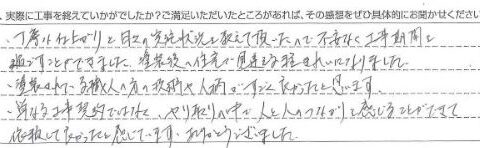 実際に工事を終えていかがでしたか?ご満足いただいたところがあれば、その感想をぜひ具体的にお聞かせください
・丁寧な仕上がりと日々の実施状況を教えて頂いたので不安なく工事期間を
過ごすことができました。塗装後の住宅が見違える程きれいになりました。
・塗装された職人の方の技術や人柄がすごく良かったと思います。
・単なる工事契約ではなく、やり取りの中で人と人のつながりを感じることができて
依頼して良かったと感じています。ありがとうございました。